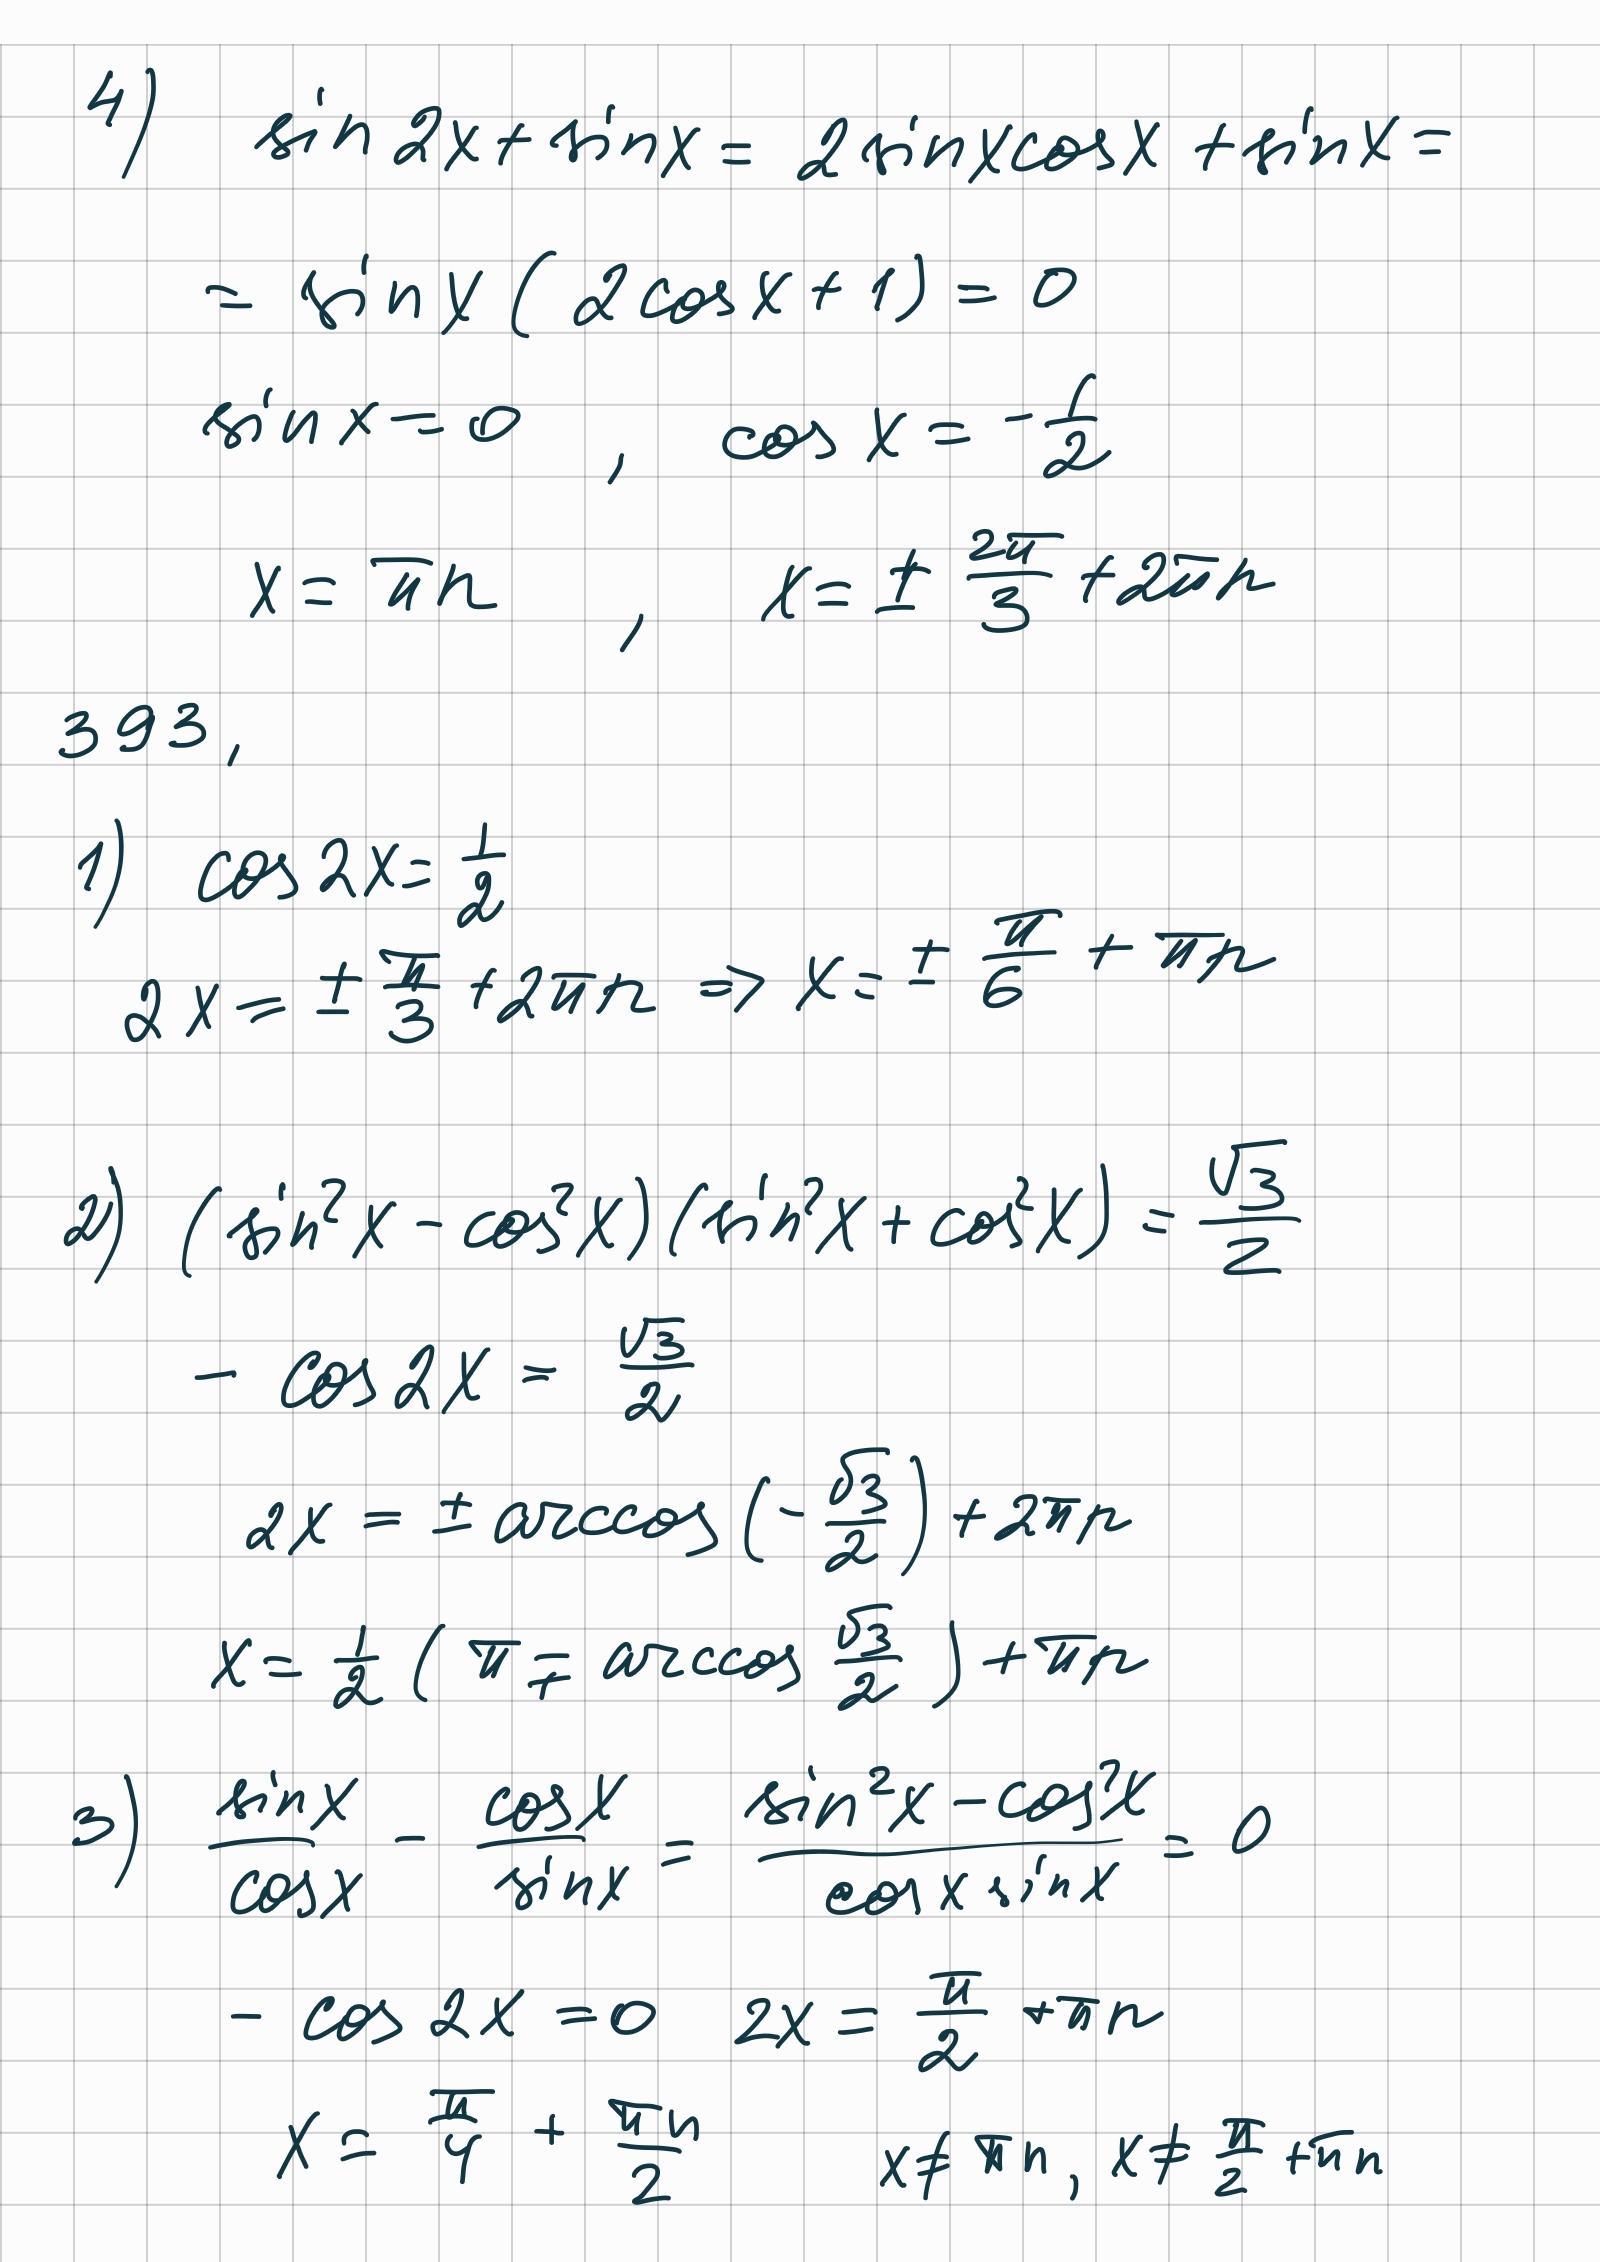 4) sin 2x + sin x = 2 sin x cos x + sin x =
= sin x (2 cos x + 1) = 0
sin x = 0 , cos x = -1/2
x = πn , x = ± 2π/3 + 2πn
393,
1) cos 2x = 1/2
2x = ± π/3 + 2πn => x = ± π/6 + πn
2) (sin²x - cos²x)(sin²x + cos²x) = √3/2
- cos 2x = √3/2
2x = ± arccos (-√3/2) + 2πn
x = 1/2 (π ∓ arccos √3/2) + πn
3) sin x/cos x - cos x/sin x = (sin²x - cos²x)/(cos x sin x) = 0
- cos 2x = 0 2x = π/2 + πn
x = π/4 + πn/2 x ≠ πn, x ≠ π/2 + πn